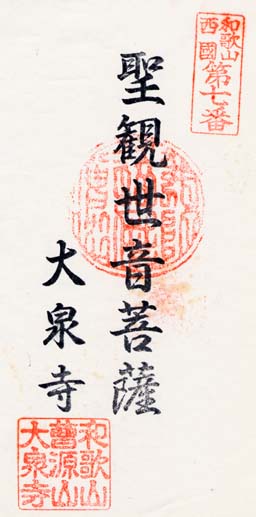 和歌山
西國
第七番
聖観世音菩薩
大泉寺
和歌山
曹源山
大泉寺